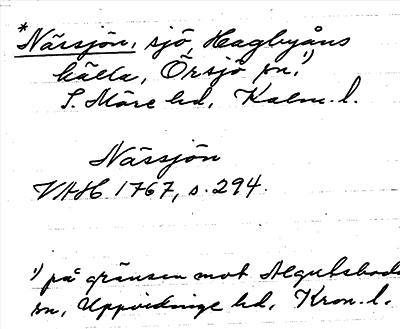 *Närsjön, sjö, Hagbyåns
källa, Örsjö sn,¹)
S. Möre hd, Kalm. l.
Närsjön
VAH 1767, s. 294.
¹) på gränsen mot Algutsboda
sn, Uppvidinge hd, Kron. l.